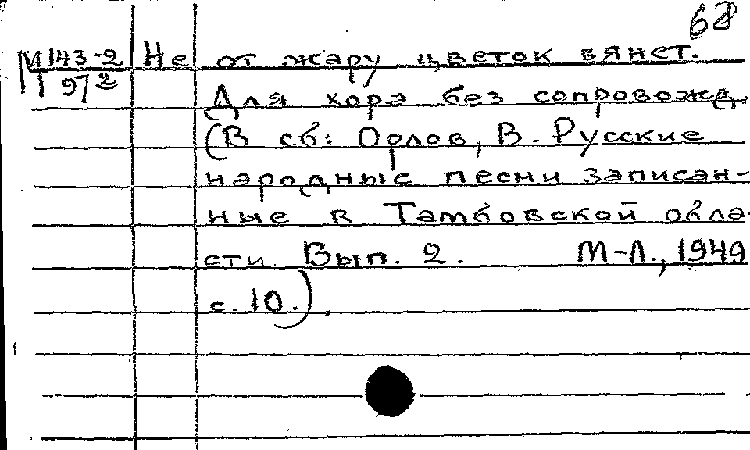 68
М 143-2 Не от жару цветок вянет.
972 Для хора без сопровожд.
(В сб: Орлов, В. Русские
народные песни записан-
ные в Тамбовской обла-
сти. Вып. 2. М-Л., 1949
с. 10.).